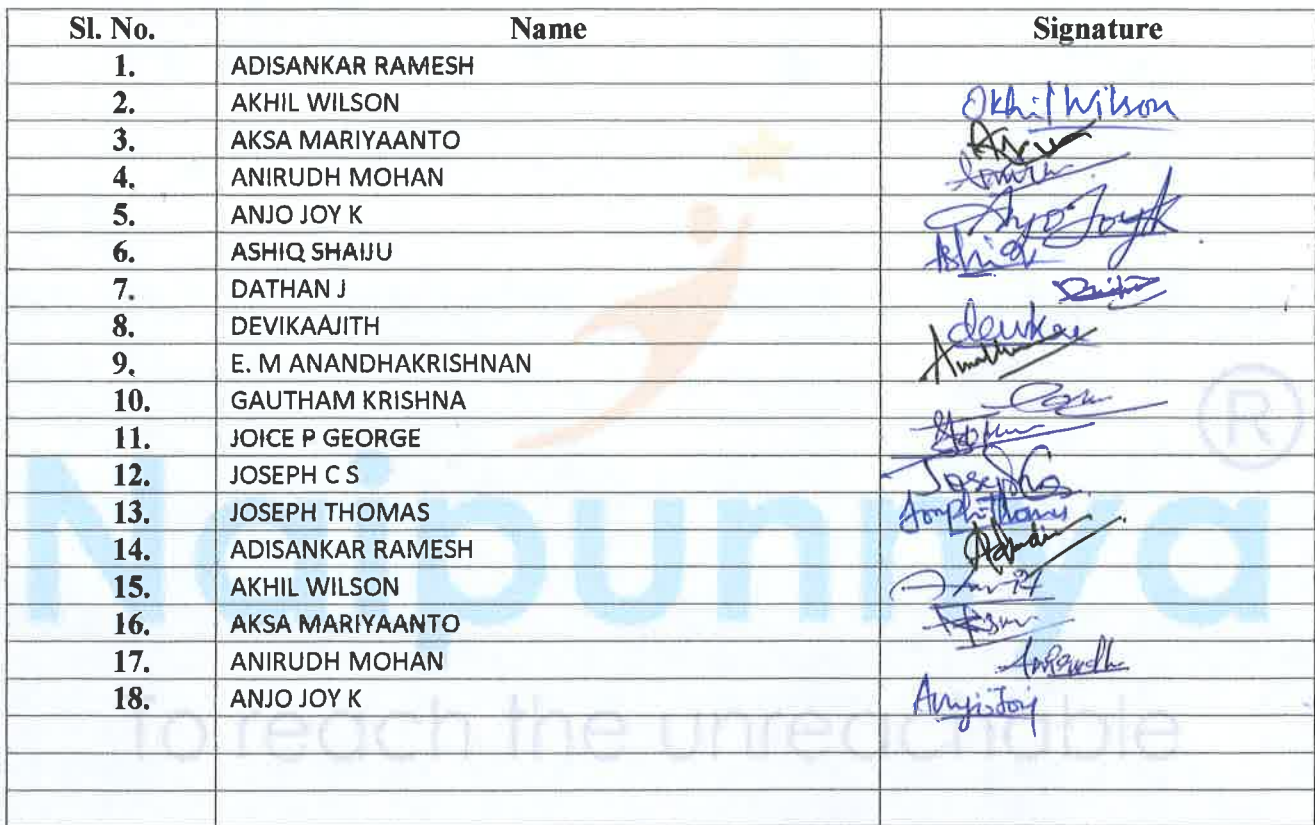 Sl. No. Name Signature
1. ADISANKAR RAMESH
2. AKHIL WILSON Akhil Wilson
3. AKSA MARIYAANTO
4. ANIRUDH MOHAN
5. ANJO JOY K Anjo Joy K
6. ASHIQ SHAIJU Ashiq
7. DATHAN J
8. DEVIKAAJITH devika
9. E. M ANANDHAKRISHNAN
10. GAUTHAM KRISHNA
11. JOICE P GEORGE
12. JOSEPH C S Joseph CS
13. JOSEPH THOMAS Joseph Thomas
14. ADISANKAR RAMESH
15. AKHIL WILSON
16. AKSA MARIYAANTO
17. ANIRUDH MOHAN Anirudh
18. ANJO JOY K
Naipunnya ®
To reach the unreachable